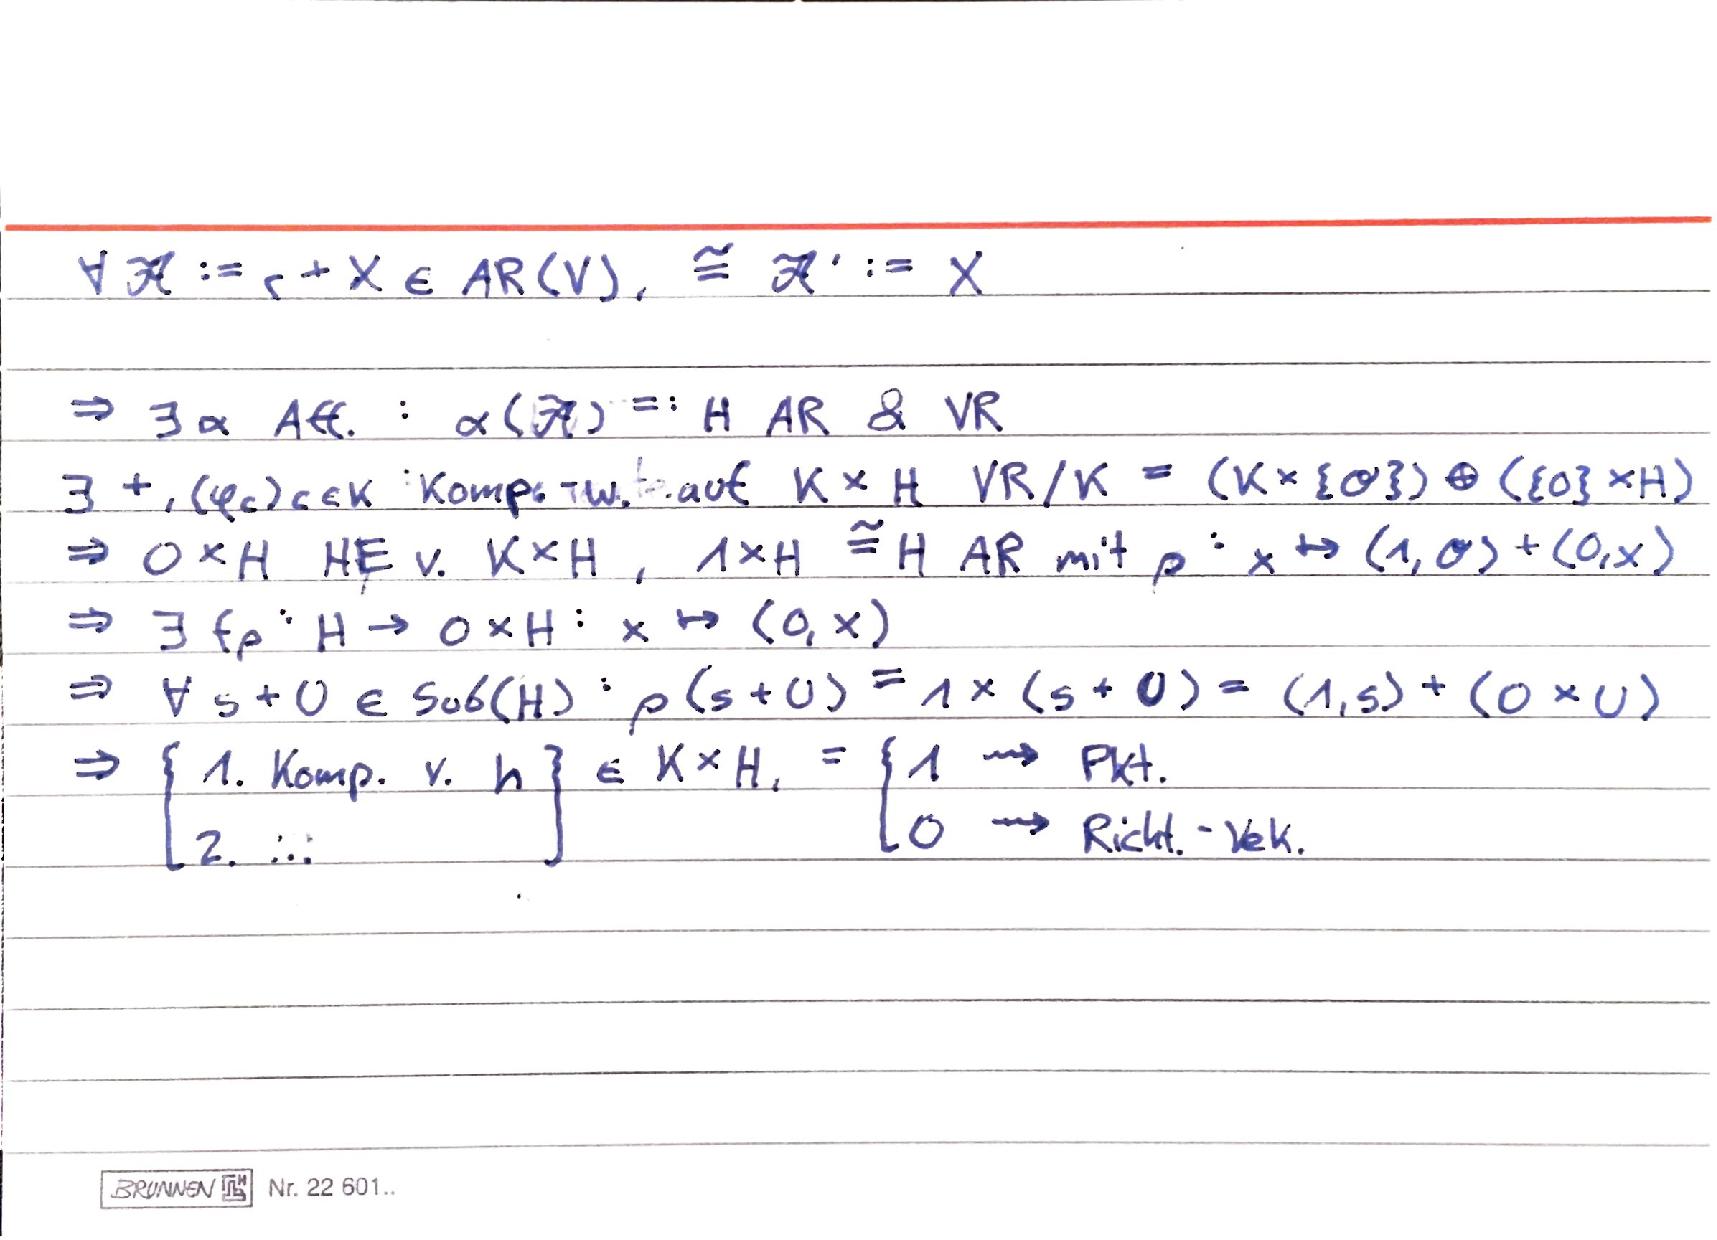 ∀ 𝓐 := r + X ∈ AR(V), ≅ 𝓐' := X
⇒ ∃ α Aff. : α(𝓐) =: H AR & VR
∃ +, (φc)c∈K : Komp.-w. auf K × H VR/K = (K × {𝒪}) ⊕ ({0} × H)
⇒ 0 × H HE v. K × H, 1 × H ≅ H AR mit ρ : x ↦ (1, 𝒪) + (0, x)
⇒ ∃ fρ : H → 0 × H : x ↦ (0, x)
⇒ ∀ s + U ∈ Sub(H) : ρ(s + U) = 1 × (s + U) = (1, s) + (0 × U)
⇒ { 1. Komp. v. h } ∈ K × H, = { 1 ⇝ Pkt.
2. ... 0 ⇝ Richt.-Vek.
BRUNNEN Nr. 22 601..